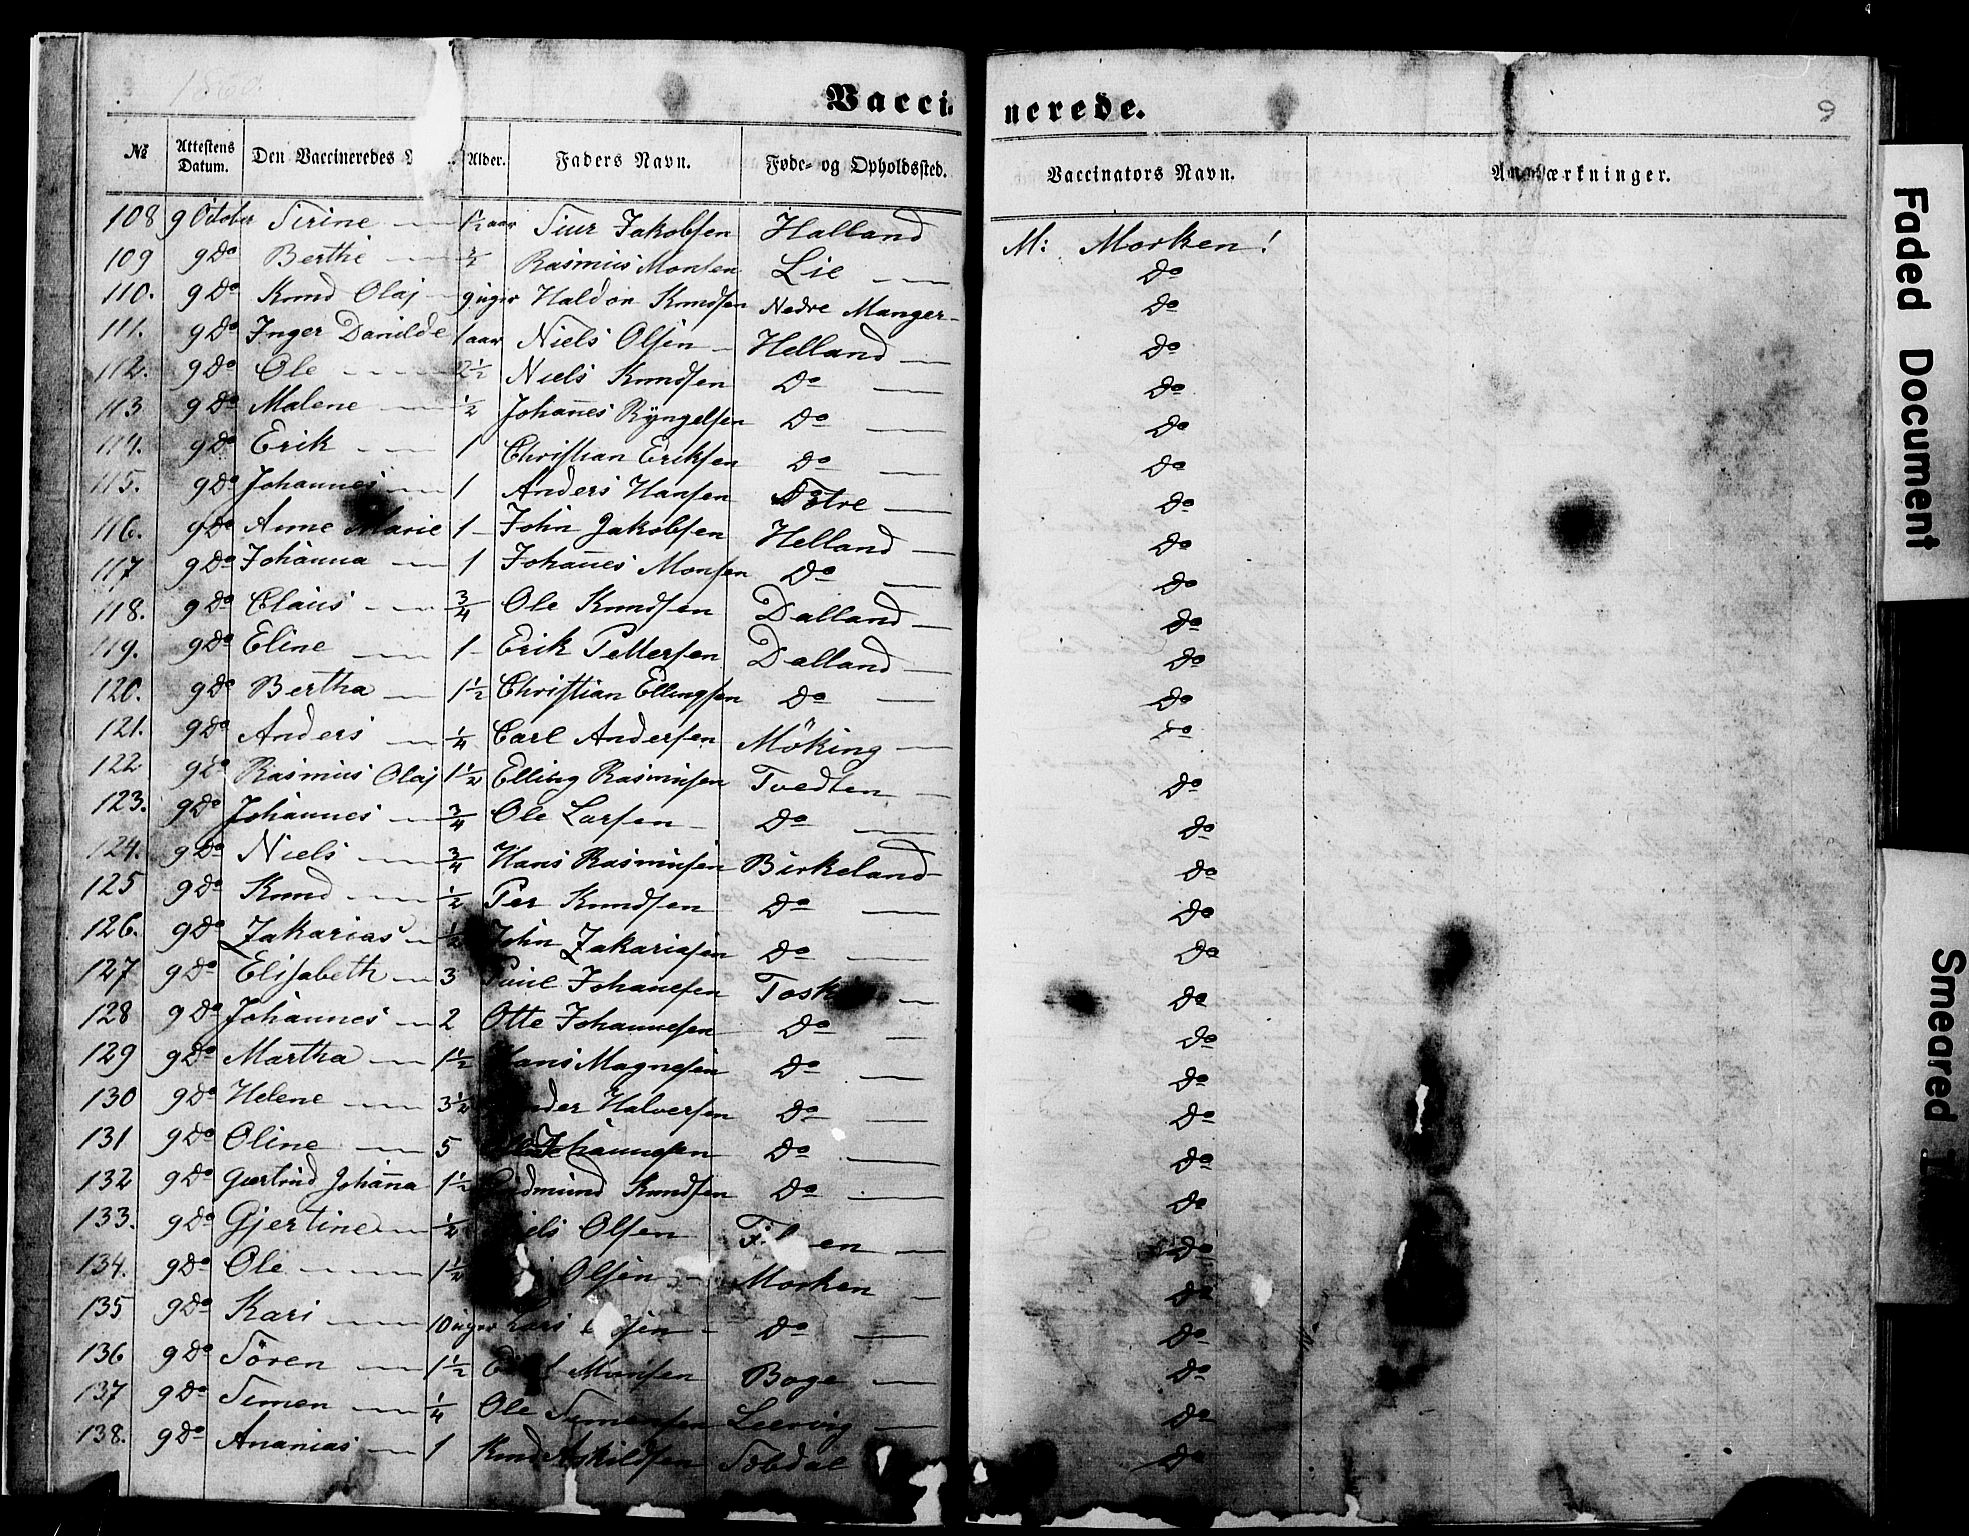 1860.
Vaccinerede.
9
№ Attestens Datum. Den Vaccineredes Alder. Faders Navn. Føde- og Opholdssted. Vaccinators Navn. Anmærkninger.
108 9 October Sirine 1½ aar Siur Jakobsen Halland M: Morken!
109 9 Do Berthe ½ Rasmus Monsen Lie Do
110. 9 Do Knud Olaj 9 uger Haldor Knudsen Nedre Manger Do
111. 9 Do Inger Danilde 1 aar Niels Olsen Helland Do
112. 9 Do Ole 2½ Niels Knudsen Do Do
113 9 Do Malene ½ Johañes Ryngelsen Do Do
114. 9 Do Erik 1 Christian Eriksen Do Do
115. 9 Do Johannes 1 Anders Hansen Totre Do
116. 9 Do Anne Marie 1 John Jakobsen Helland Do
117 9 Do Johanna 1 Johañes Monsen Do Do
118. 9 Do Claus ¾ Ole Knudsen Dalland Do
119. 9 Do Eline 1 Erik Pettersen Dalland Do
120. 9 Do Bertha 1½ Christian Ellingsen Do Do
121. 9 Do Anders ¼ Carl Andersen Möking Do
122 9 Do Rasmus Olaj 1½ Elling Rasmusen Tvedten Do
123. 9 Do Johannes ¾ Ole Larsen Do Do
124. 9 Do Niels ¾ Hans Rasmusen Birkeland Do
125 9 Do Knud ½ Per Knudsen Do Do
126. 9 Do Zakarias ½ John Zakariasen Do Do
127 9 Do Elisabeth 3 Paul Johanesen Do
128 9 Do Johannes 2 Otte Johannesen Do Do
129 9 Do Martha 1½ Hans Magnesen Do Do
130 9 Do Helene 3½ Halversen Do Do
131 9 Do Oline 5 Johannesen Do Do
132 9 Do Gertrud Johañna 1½ Gudmund Knudsen Do Do
133. 9 Do Gjertine ½ Niels Olsen Do
134. 9 Do Ole 1½ Olsen Morken Do
135 9 Do Kari 10 uger Lars Do Do
136 9 Do Sören 1½ Monsen Boge Do
137 9 Do Simen ¼ Ole Simensen Leervig Do
138. 9 Do Ananias 1 Knud Askildsen Solsdal Do
Faded Document
Smeared